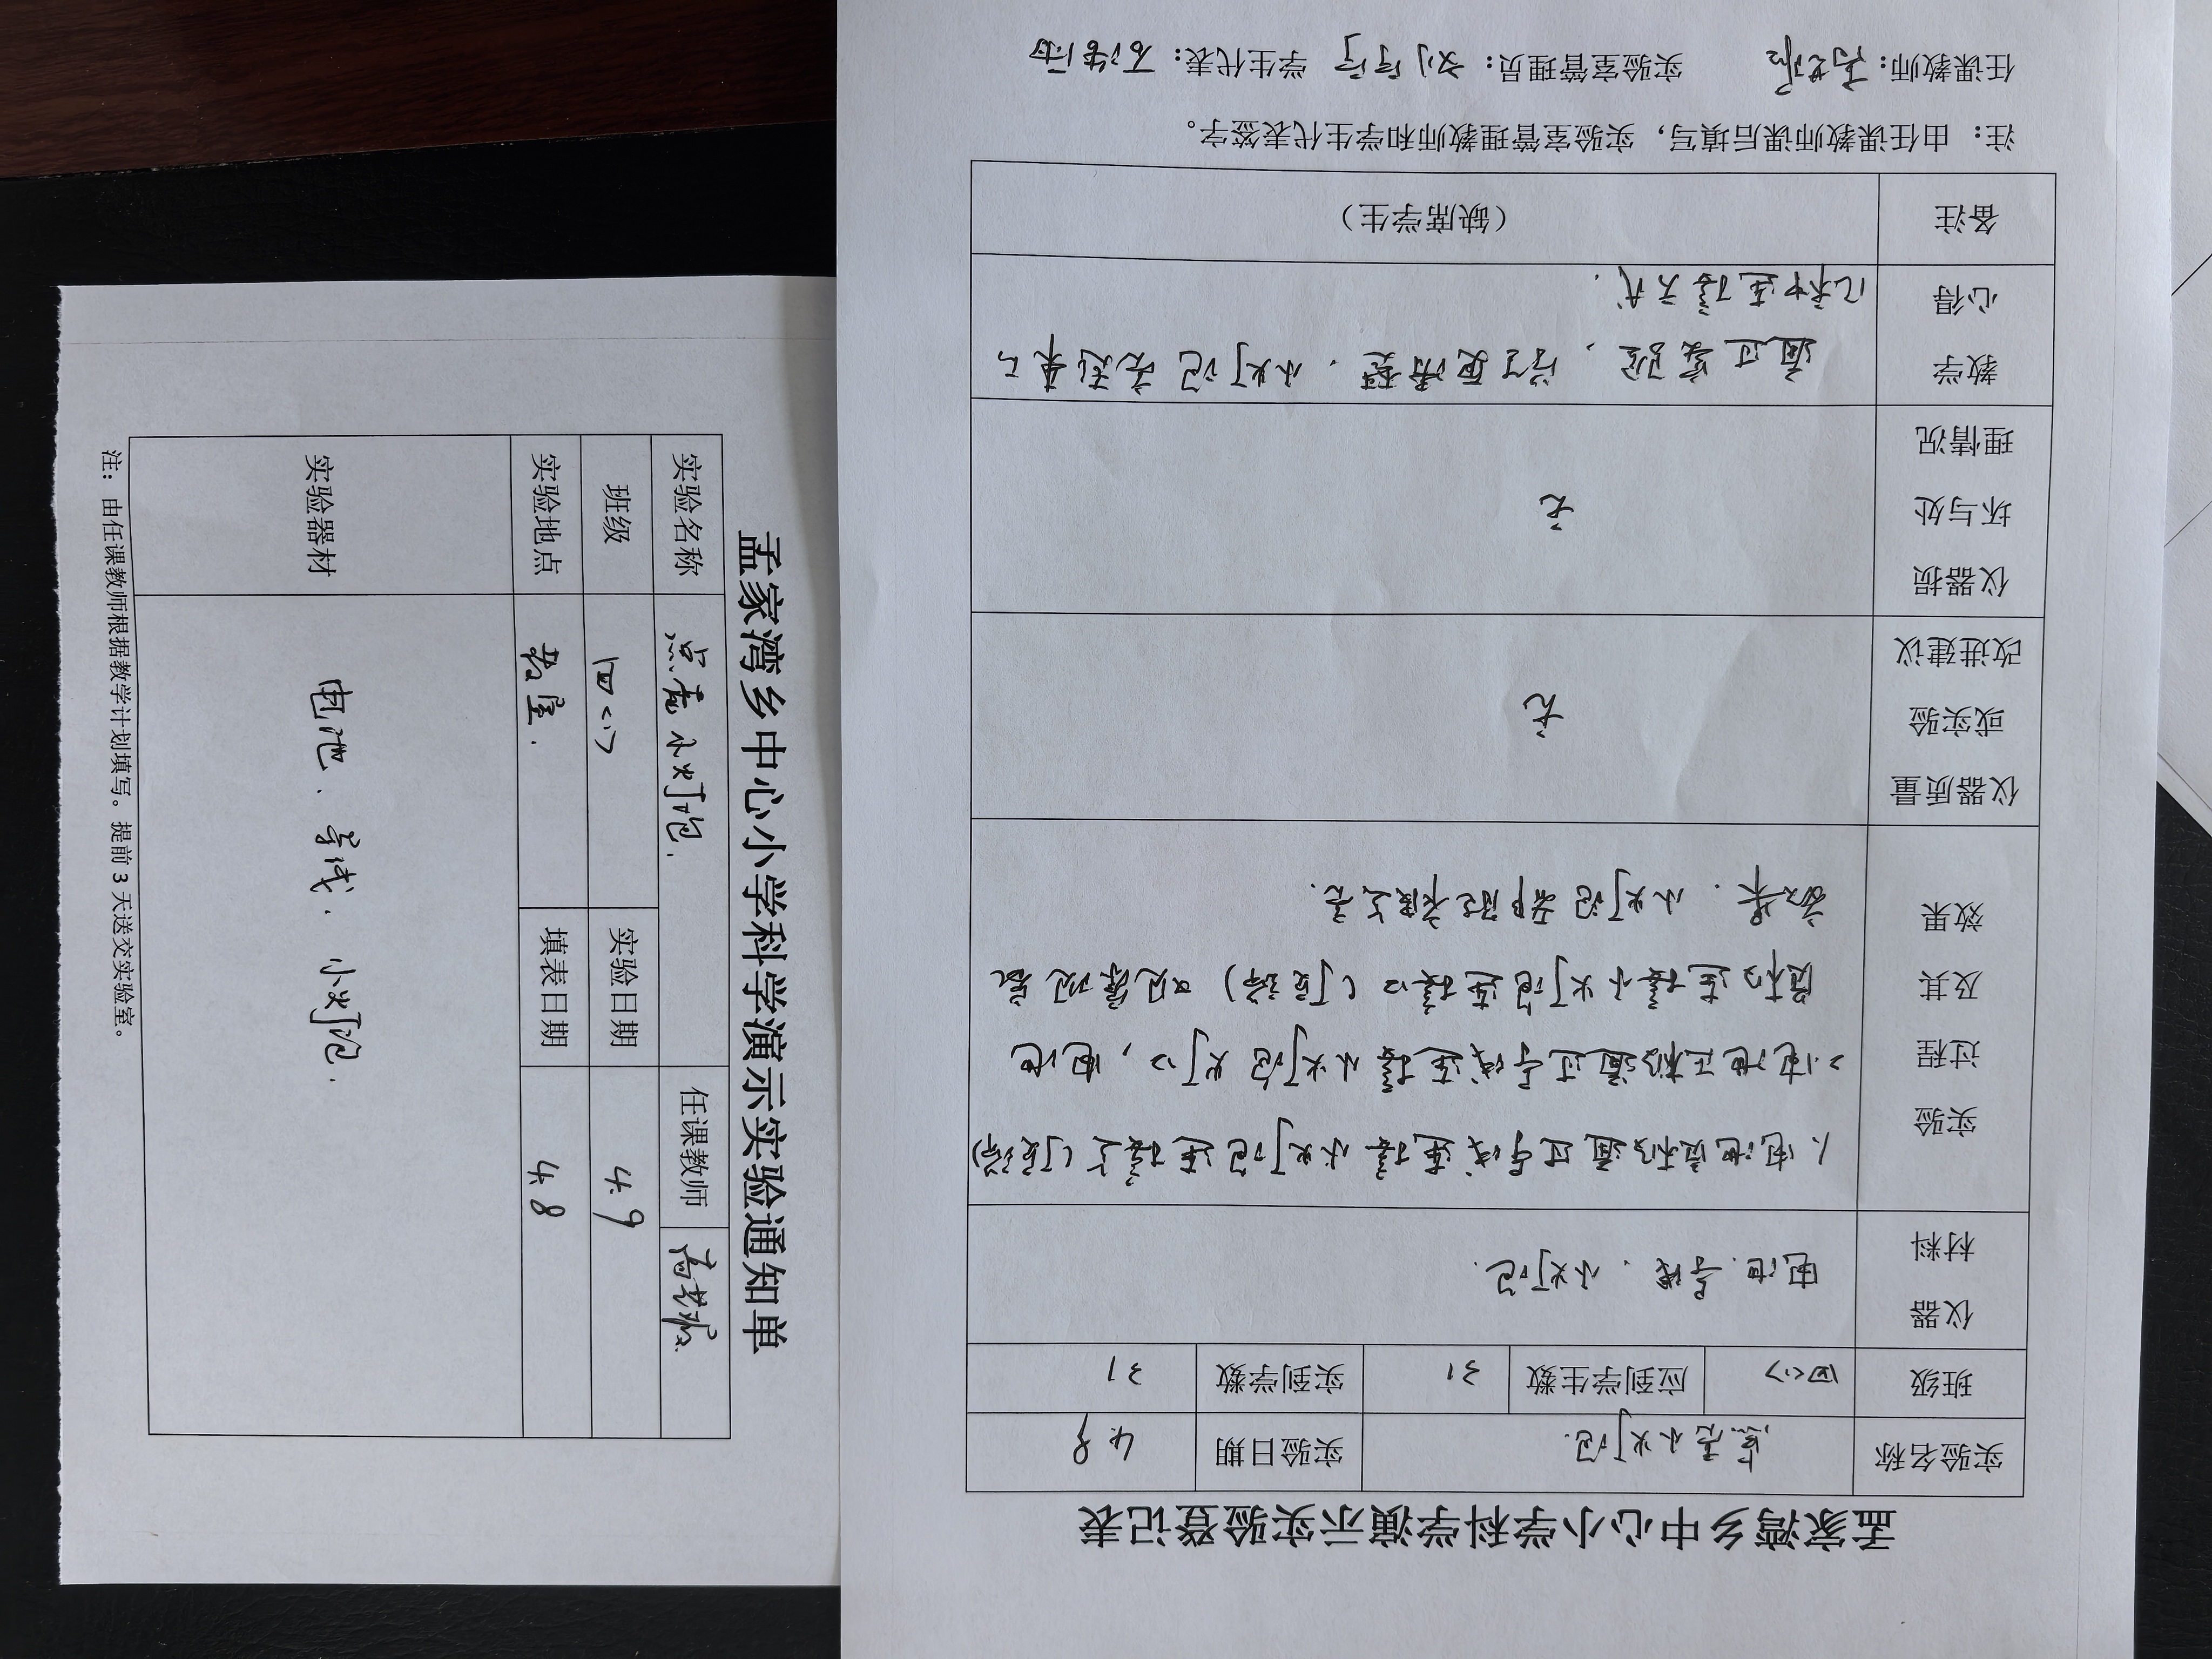 孟家湾乡中心小学科学演示实验通知单
实验名称 点亮小灯泡. 任课教师
班级 四(1) 实验日期 4.9
实验地点 教室. 填表日期 4.8
实验器材 电池、导线、小灯泡.
注：由任课教师根据教学计划填写。提前 3 天送交实验室。
孟家湾乡中心小学科学演示实验登记表
实验名称 点亮小灯泡. 实验日期 4.9
班级 四(1) 应到学生数 31 实到学数 31
仪器
材料
电池、导线、小灯泡.
实验
过程
及其
效果
1、电池负极通过导线连接小灯泡连接上(顶端)
2、电池正极通过导线连接小灯泡灯口，电池
负极连接小灯泡连接口(顶端) 观察现象
效果. 小灯泡都能被点亮.
仪器质量
或实验
改进建议
无
仪器损
坏与处
理情况
无
教学
心得
通过实验，学了更清楚. 小灯泡亮起来的
几种连接方式.
备注 （缺席学生）
注：由任课教师课后填写，实验室管理教师和学生代表签字。
任课教师： 实验室管理员： 学生代表：